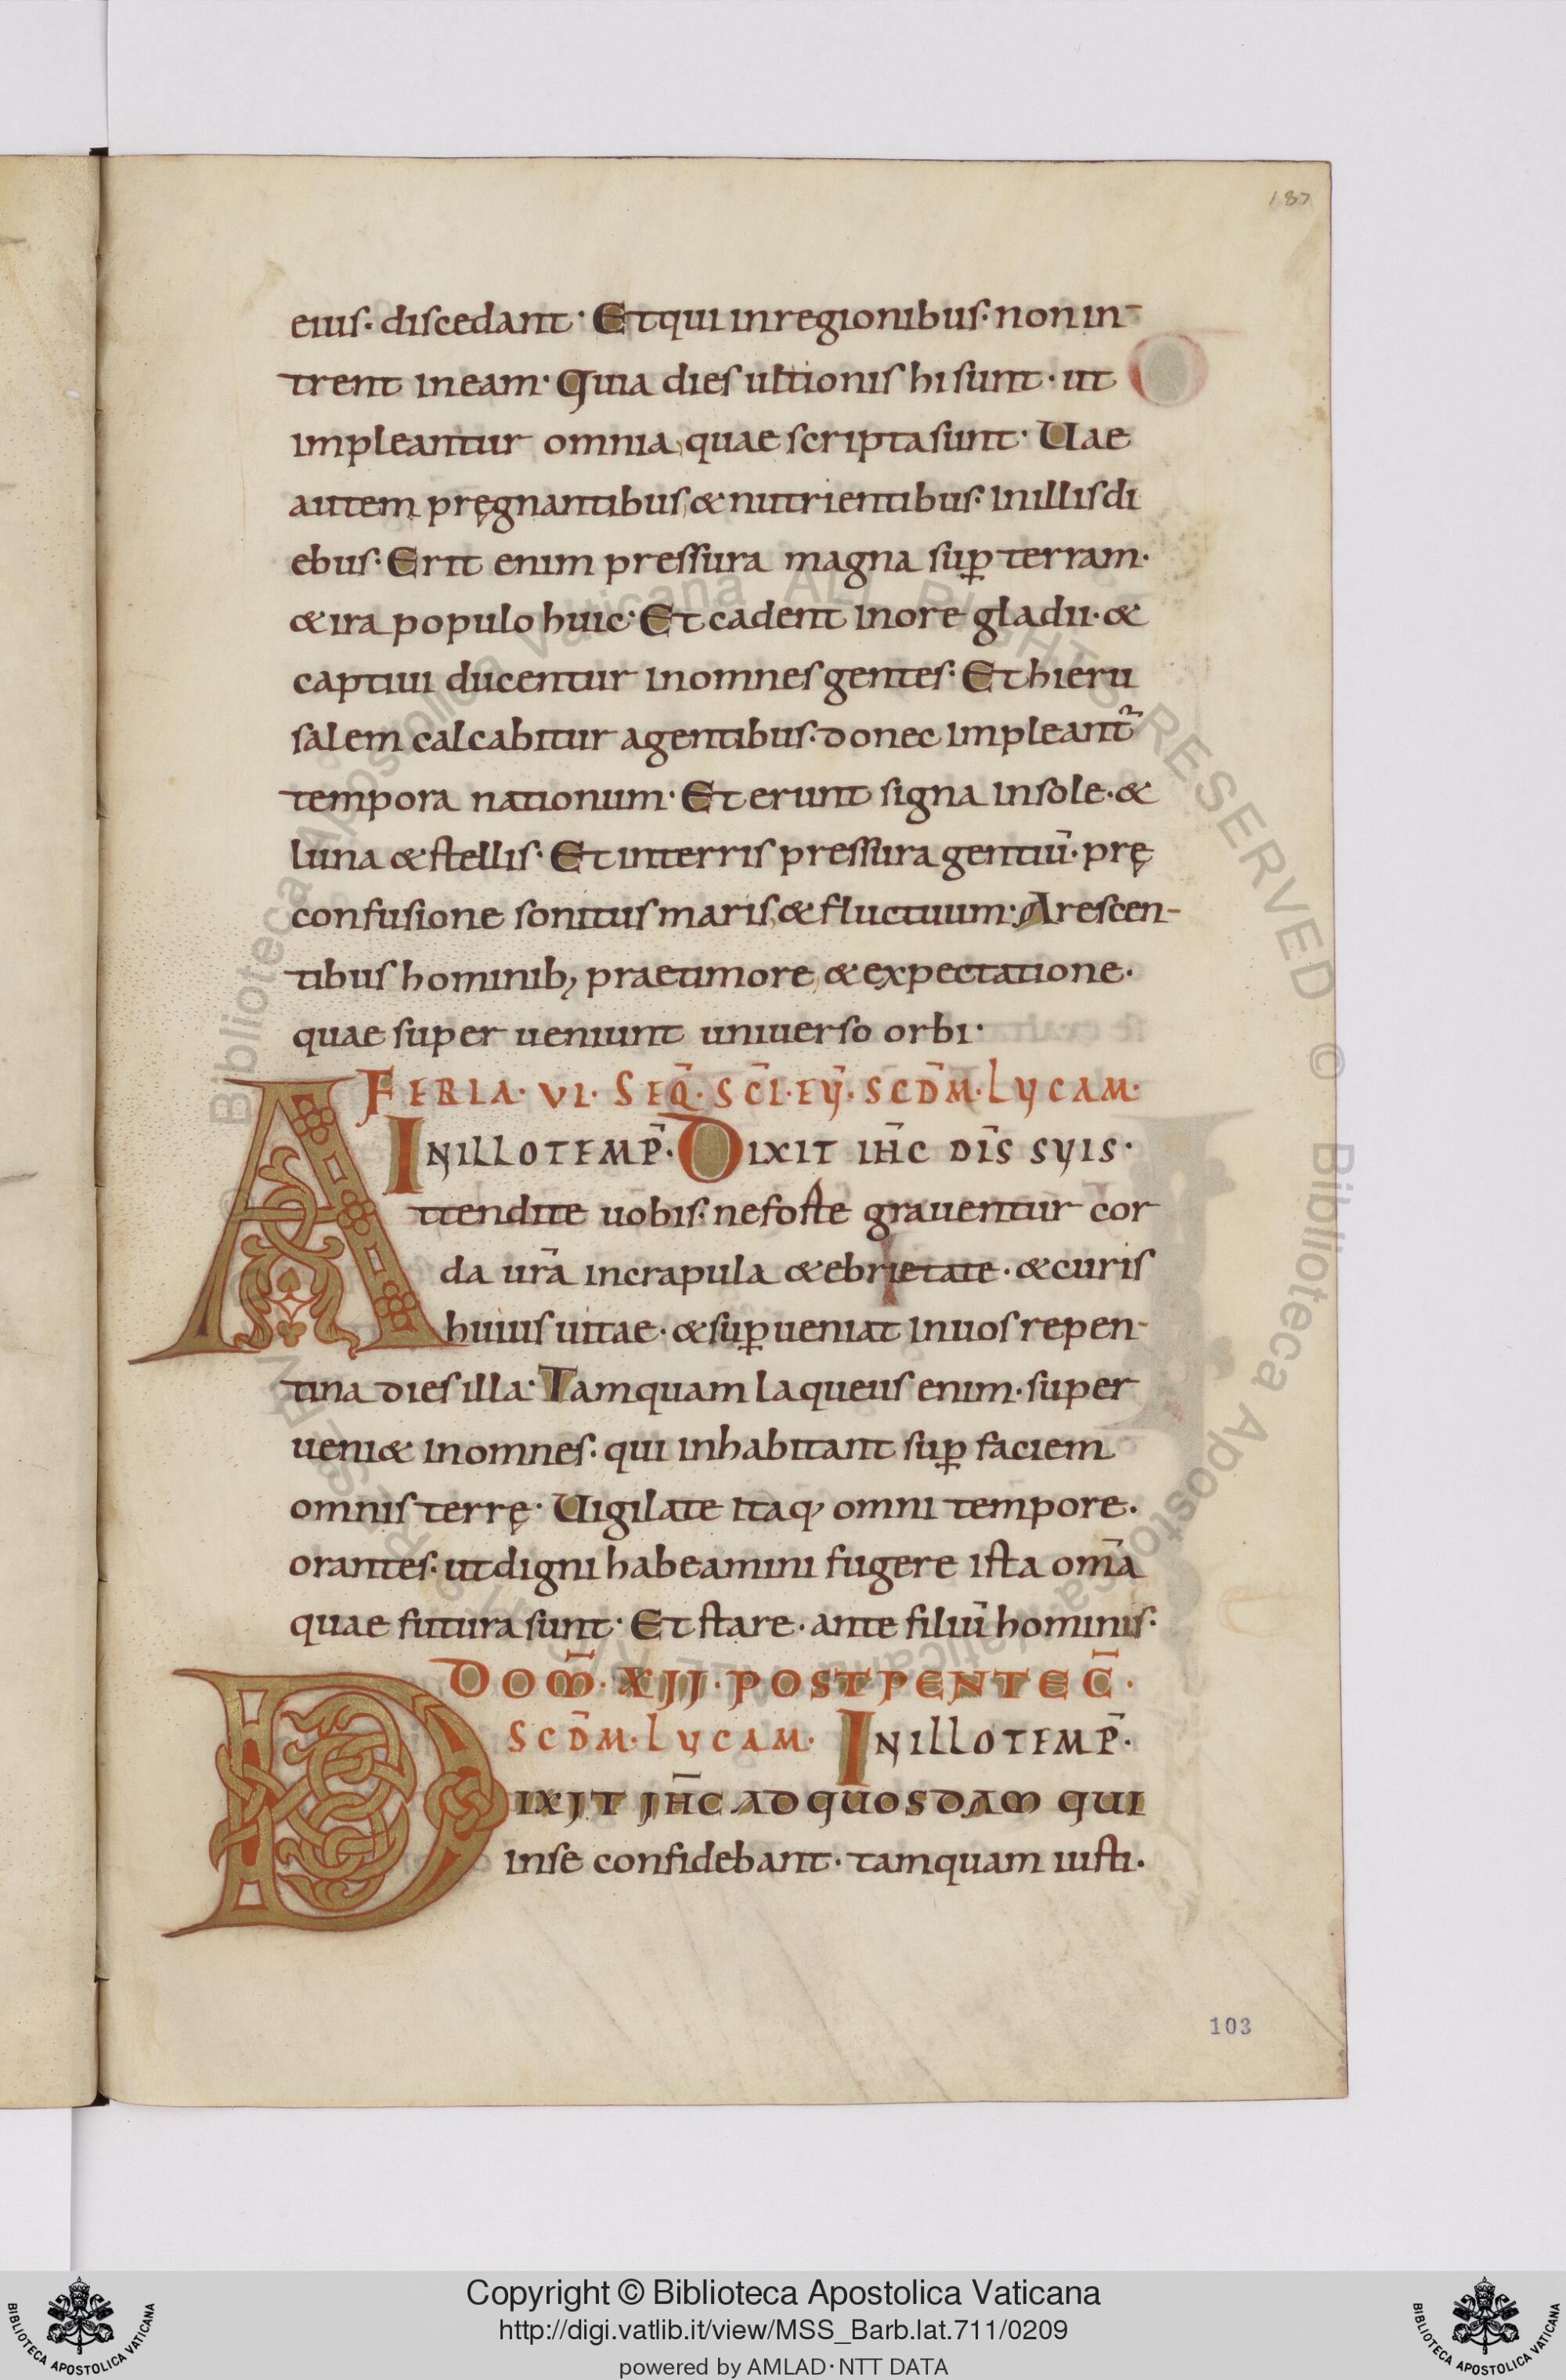 187
eius. discedant. Et qui in regionibus. non in-
trent in eam. Quia dies ultionis hi sunt. ut
impleantur omnia, quae scripta sunt. Uae
autem pręgnantibus, & nutrientibus. In illis di
ebus. Erit enim pressura magna suꝑ terram.
& ira populo huic. Et cadent in ore gladii. &
captiui ducentur in omnes gentes. Et hieru
salem calcabitur a gentibus. donec impleant᷑
tempora nationum. Et erunt signa in sole. &
luna & stellis. Et in terris pressura gentiū. prę
confusione sonitus maris, & fluctuum. Arescen-
tibus hominib; prae timore, & expectatione.
quae super ueniunt uniuerso orbi.
FERIA. VI. SEQ̄. SC̄I. EỸ. SCD̄M. LUCAM.
IN ILLO TEMP̄. DIXIT IH̄C DĪS SUIS.
Attendite uobis. ne forte grauentur cor
da ur̄a in crapula & ebrietate. & curis
huius uitae. & suꝑueniat in uos repen-
tina dies illa. Tamquam laqueus enim. super
ueni& in omnes. qui inhabitant suꝑ faciem
omnis terrę. Uigilate itaq; omni tempore.
orantes. ut digni habeamini fugere ista om̄a
quae futura sunt. Et stare. ante filiū hominis.
DOM̄. XII. POST PENTEC̄.
SCD̄M. LUCAM. IN ILLO TEMP̄.
DIXIT IH̄C AD QUOSDAM QUI
in se confidebant. tamquam iusti.
103
Copyright © Biblioteca Apostolica Vaticana
http://digi.vatlib.it/view/MSS_Barb.lat.711/0209
powered by AMLAD · NTT DATA
BIBLIOTECA APOSTOLICA VATICANA
BIBLIOTECA APOSTOLICA VATICANA